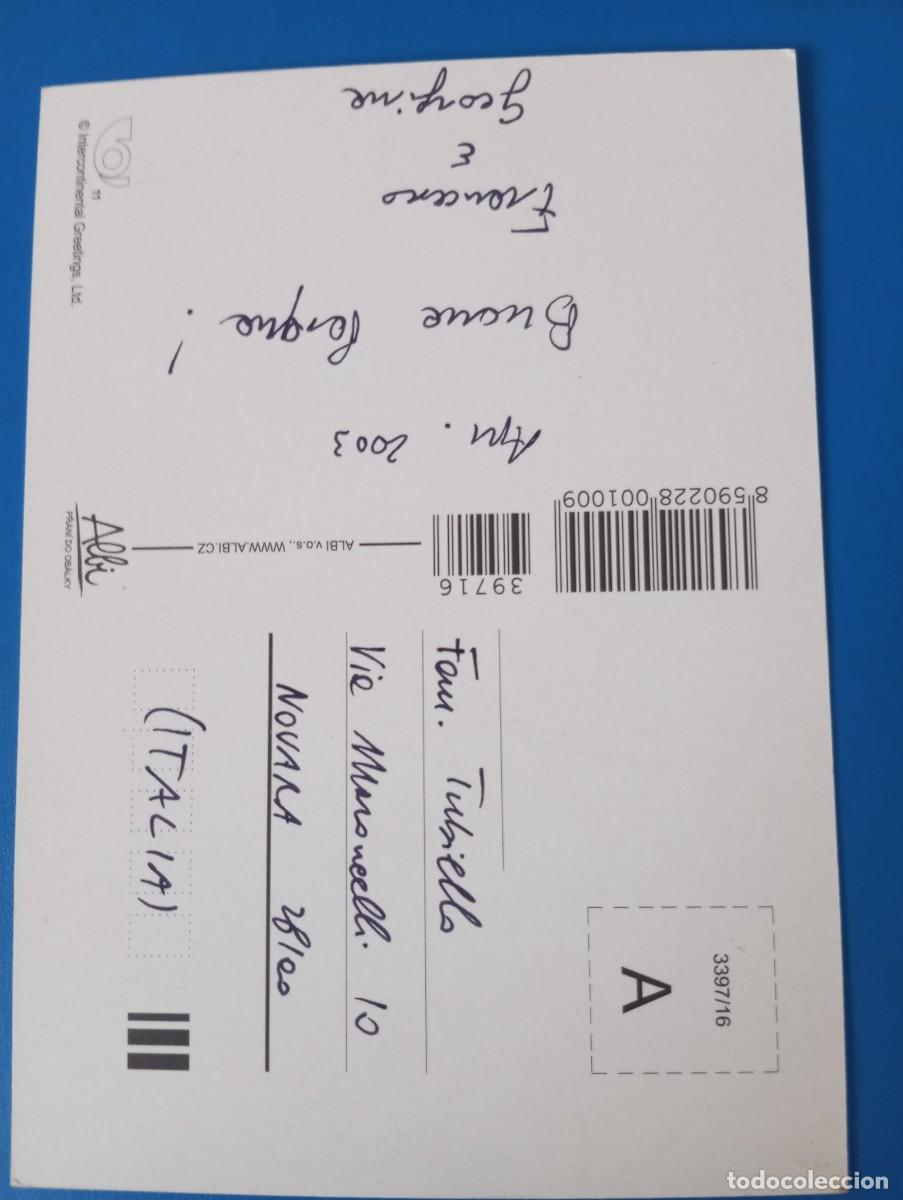 Apr. 2003
Buone Pasqua!
Francesco
e
Georgine
11
© Intercontinental Greetings, Ltd.
Albi
PŘÁNÍ DO OBÁLKY
ALBI v.o.s., WWW.ALBI.CZ
39716
8 590228 001009
3397/16
A
Fam. Tubiello
Via Maroncelli 10
NOVARA 28100
(ITALIA)
todocoleccion